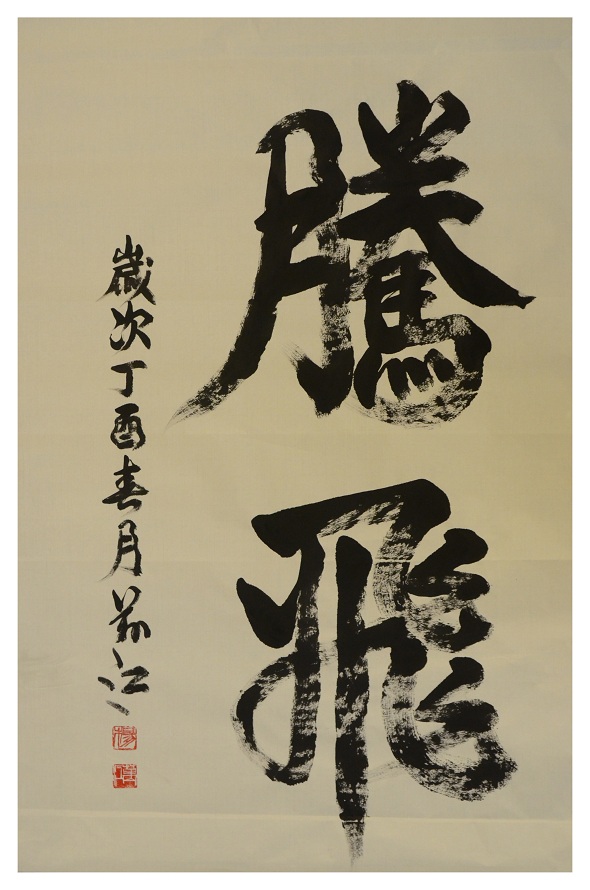 騰飛
歲次丁酉春月